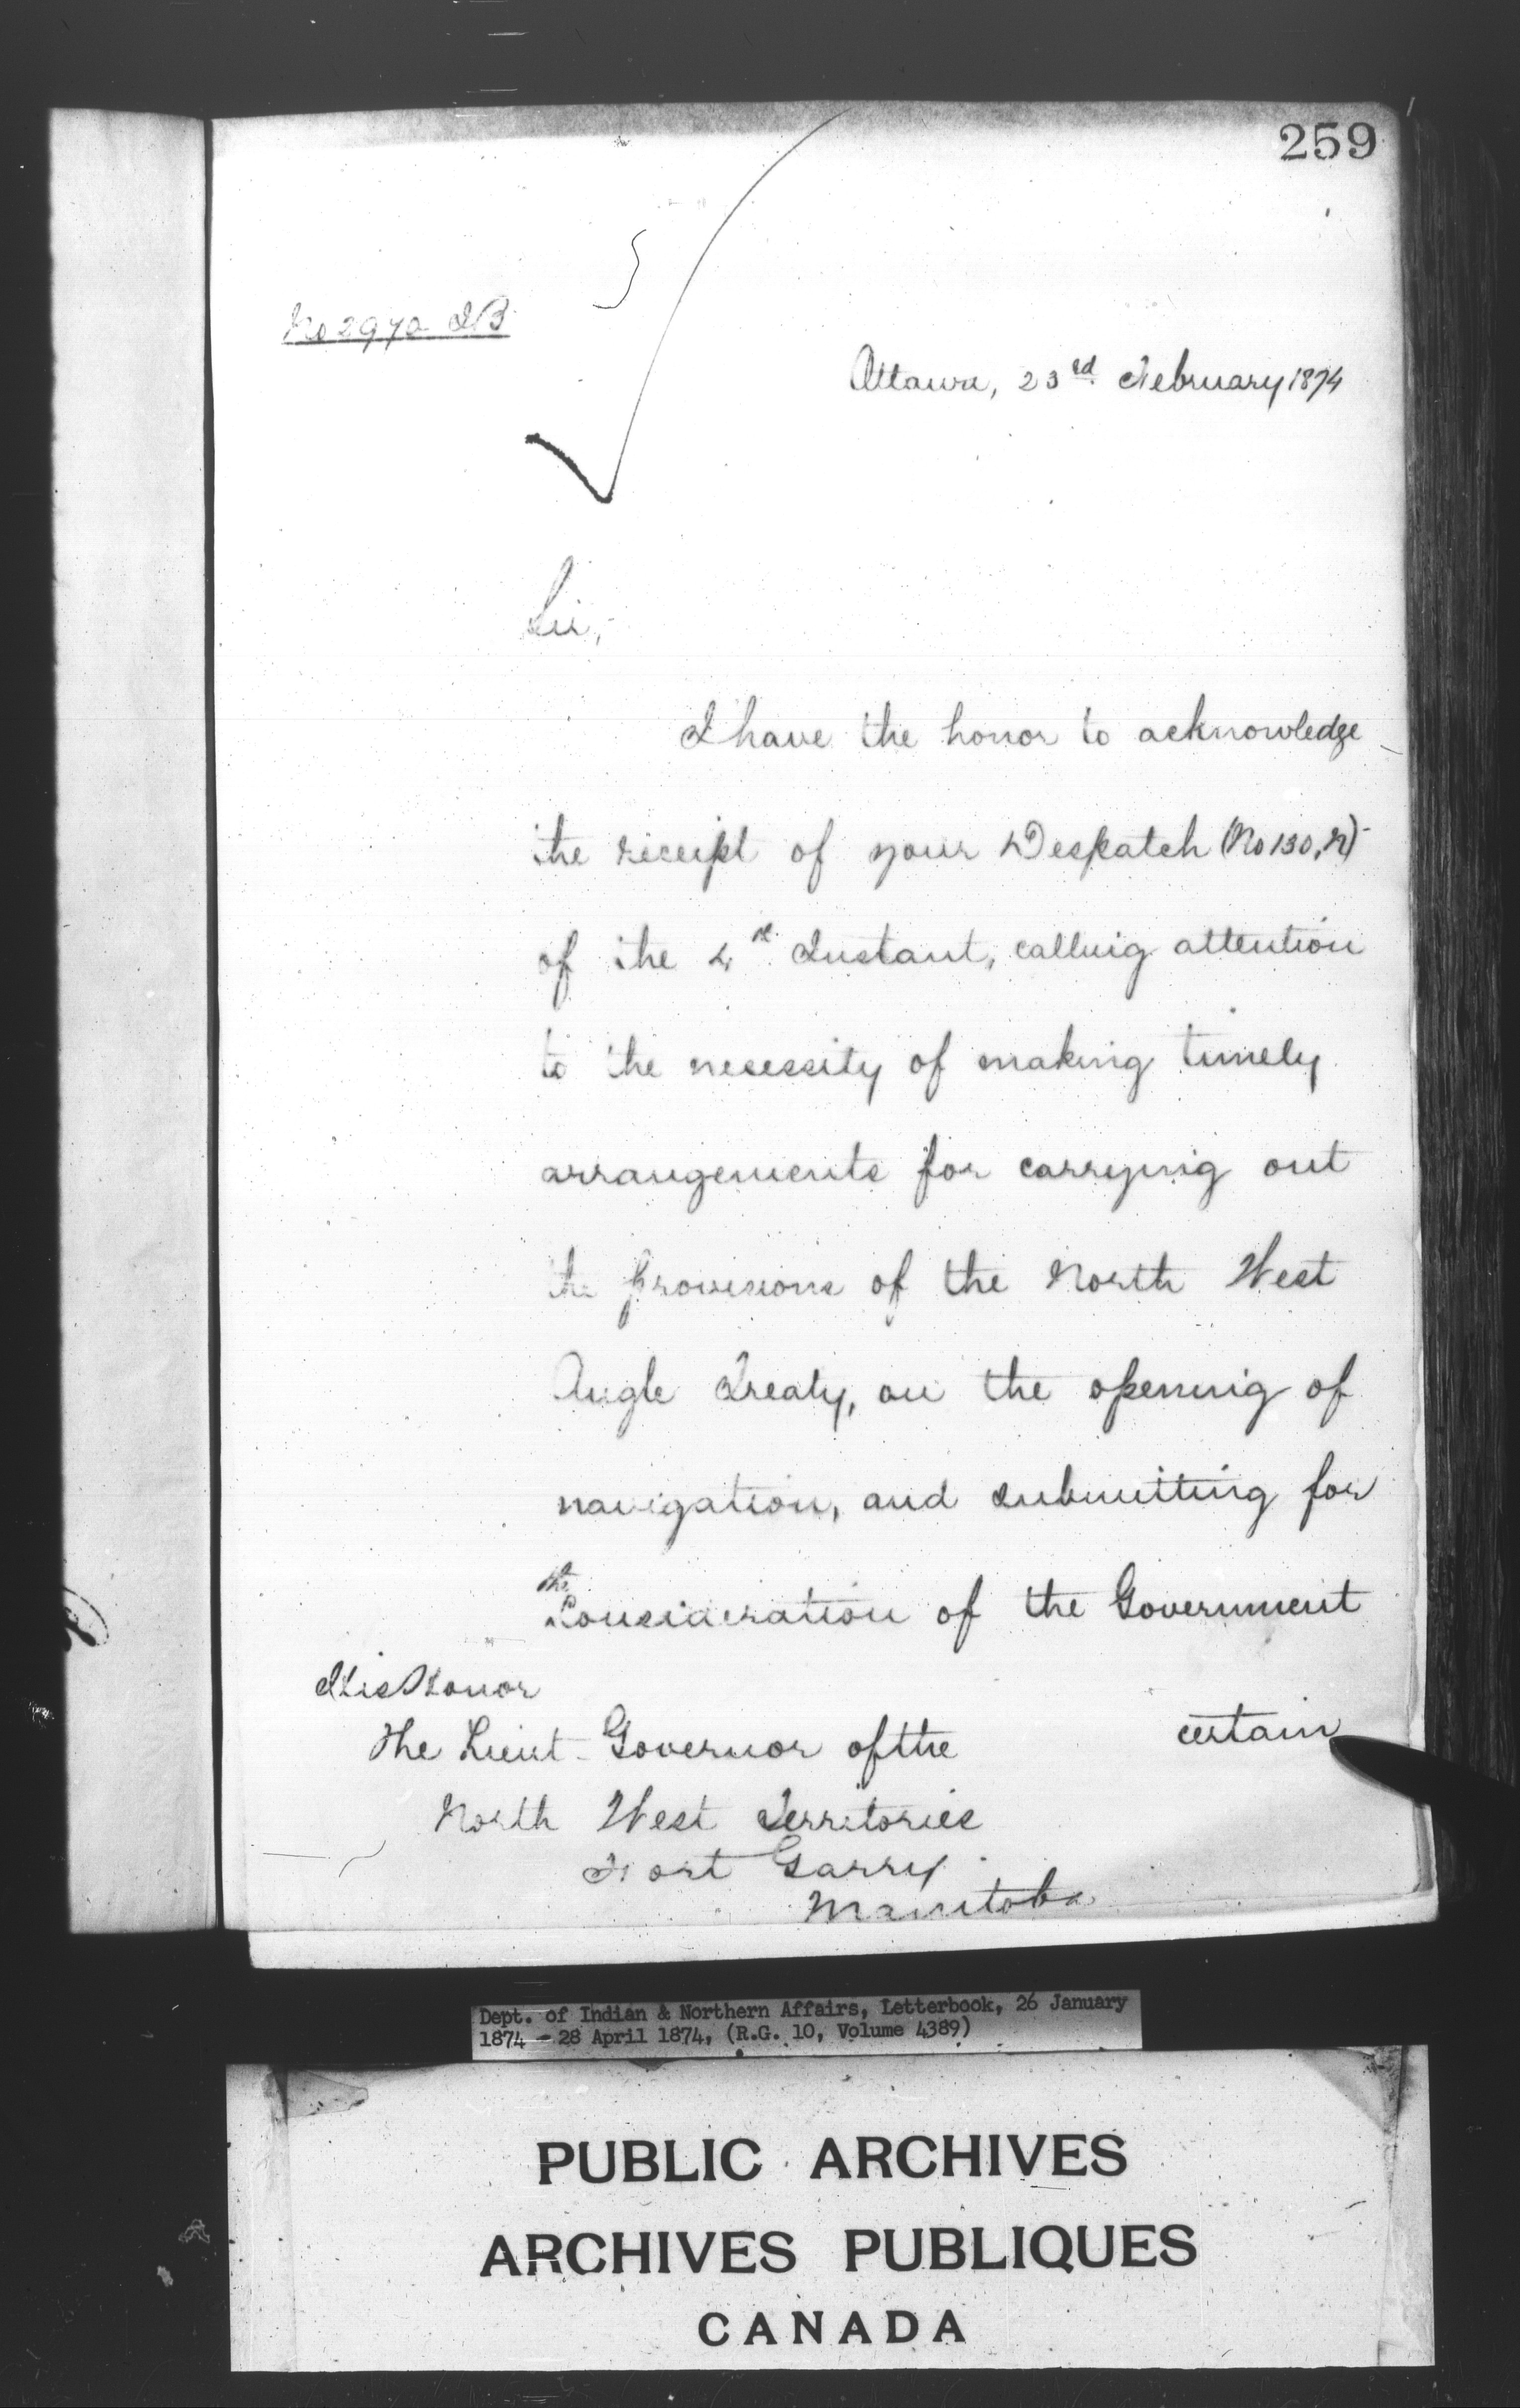 259
No 2970 IB
Ottawa, 23rd February 1874
Sir,
I have the honor to acknowledge
the receipt of your Despatch (No 130, N)
of the 4th Instant, calling attention
to the necessity of making timely
arrangements for carrying out
the provisions of the North West
Angle Treaty, on the opening of
navigation, and submitting for
the
Consideration of the Government
certain
His Honor
The Lieut-Governor of the
North West Territories
Fort Garry
Manitoba
Dept. of Indian & Northern Affairs, Letterbook, 26 January
1874 - 28 April 1874, (R.G. 10, Volume 4389)
PUBLIC ARCHIVES
ARCHIVES PUBLIQUES
CANADA